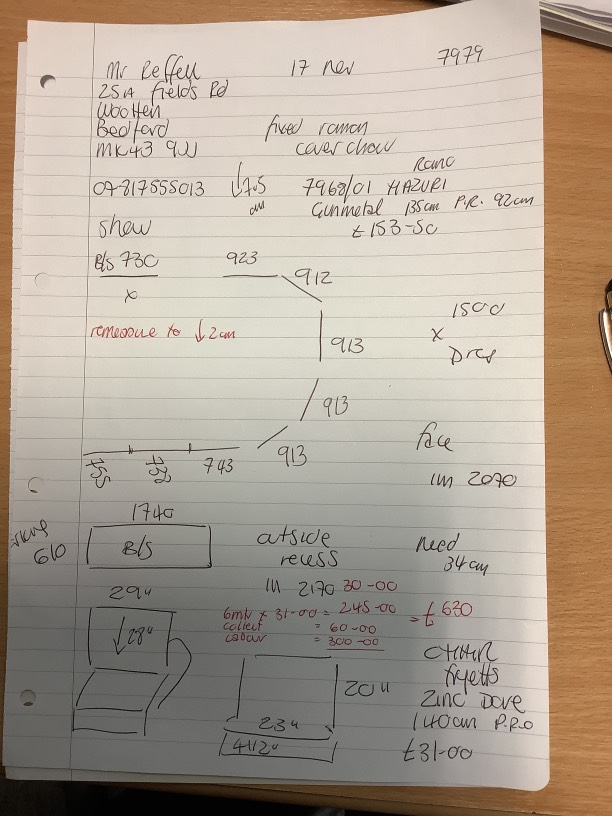 Mr Reffell 17 Nov 7979
25A Fields Rd
Wootten
Bedford fixed roman
MK43 9JJ cover chair
Romo
07817555013 ↓705 7968/01 HAZURI
Gunmetal 135cm P.R. 92cm
£153-50
B/S 730 923
x 912
1500
remeasure to ↓2cm x
913
913
face
755 752 743 913
1M 2070
1740
B/S outside need
610 recess 34cm
1M 2170 30-00
29"
6mtr x 31-00 = 245-00 = £ 630
collect = 60-00
labour = 300-00
↓28"
CHAIR
fryetts
20" Zinc Dove
140cm P.R.O
23"
41/2" £31-00